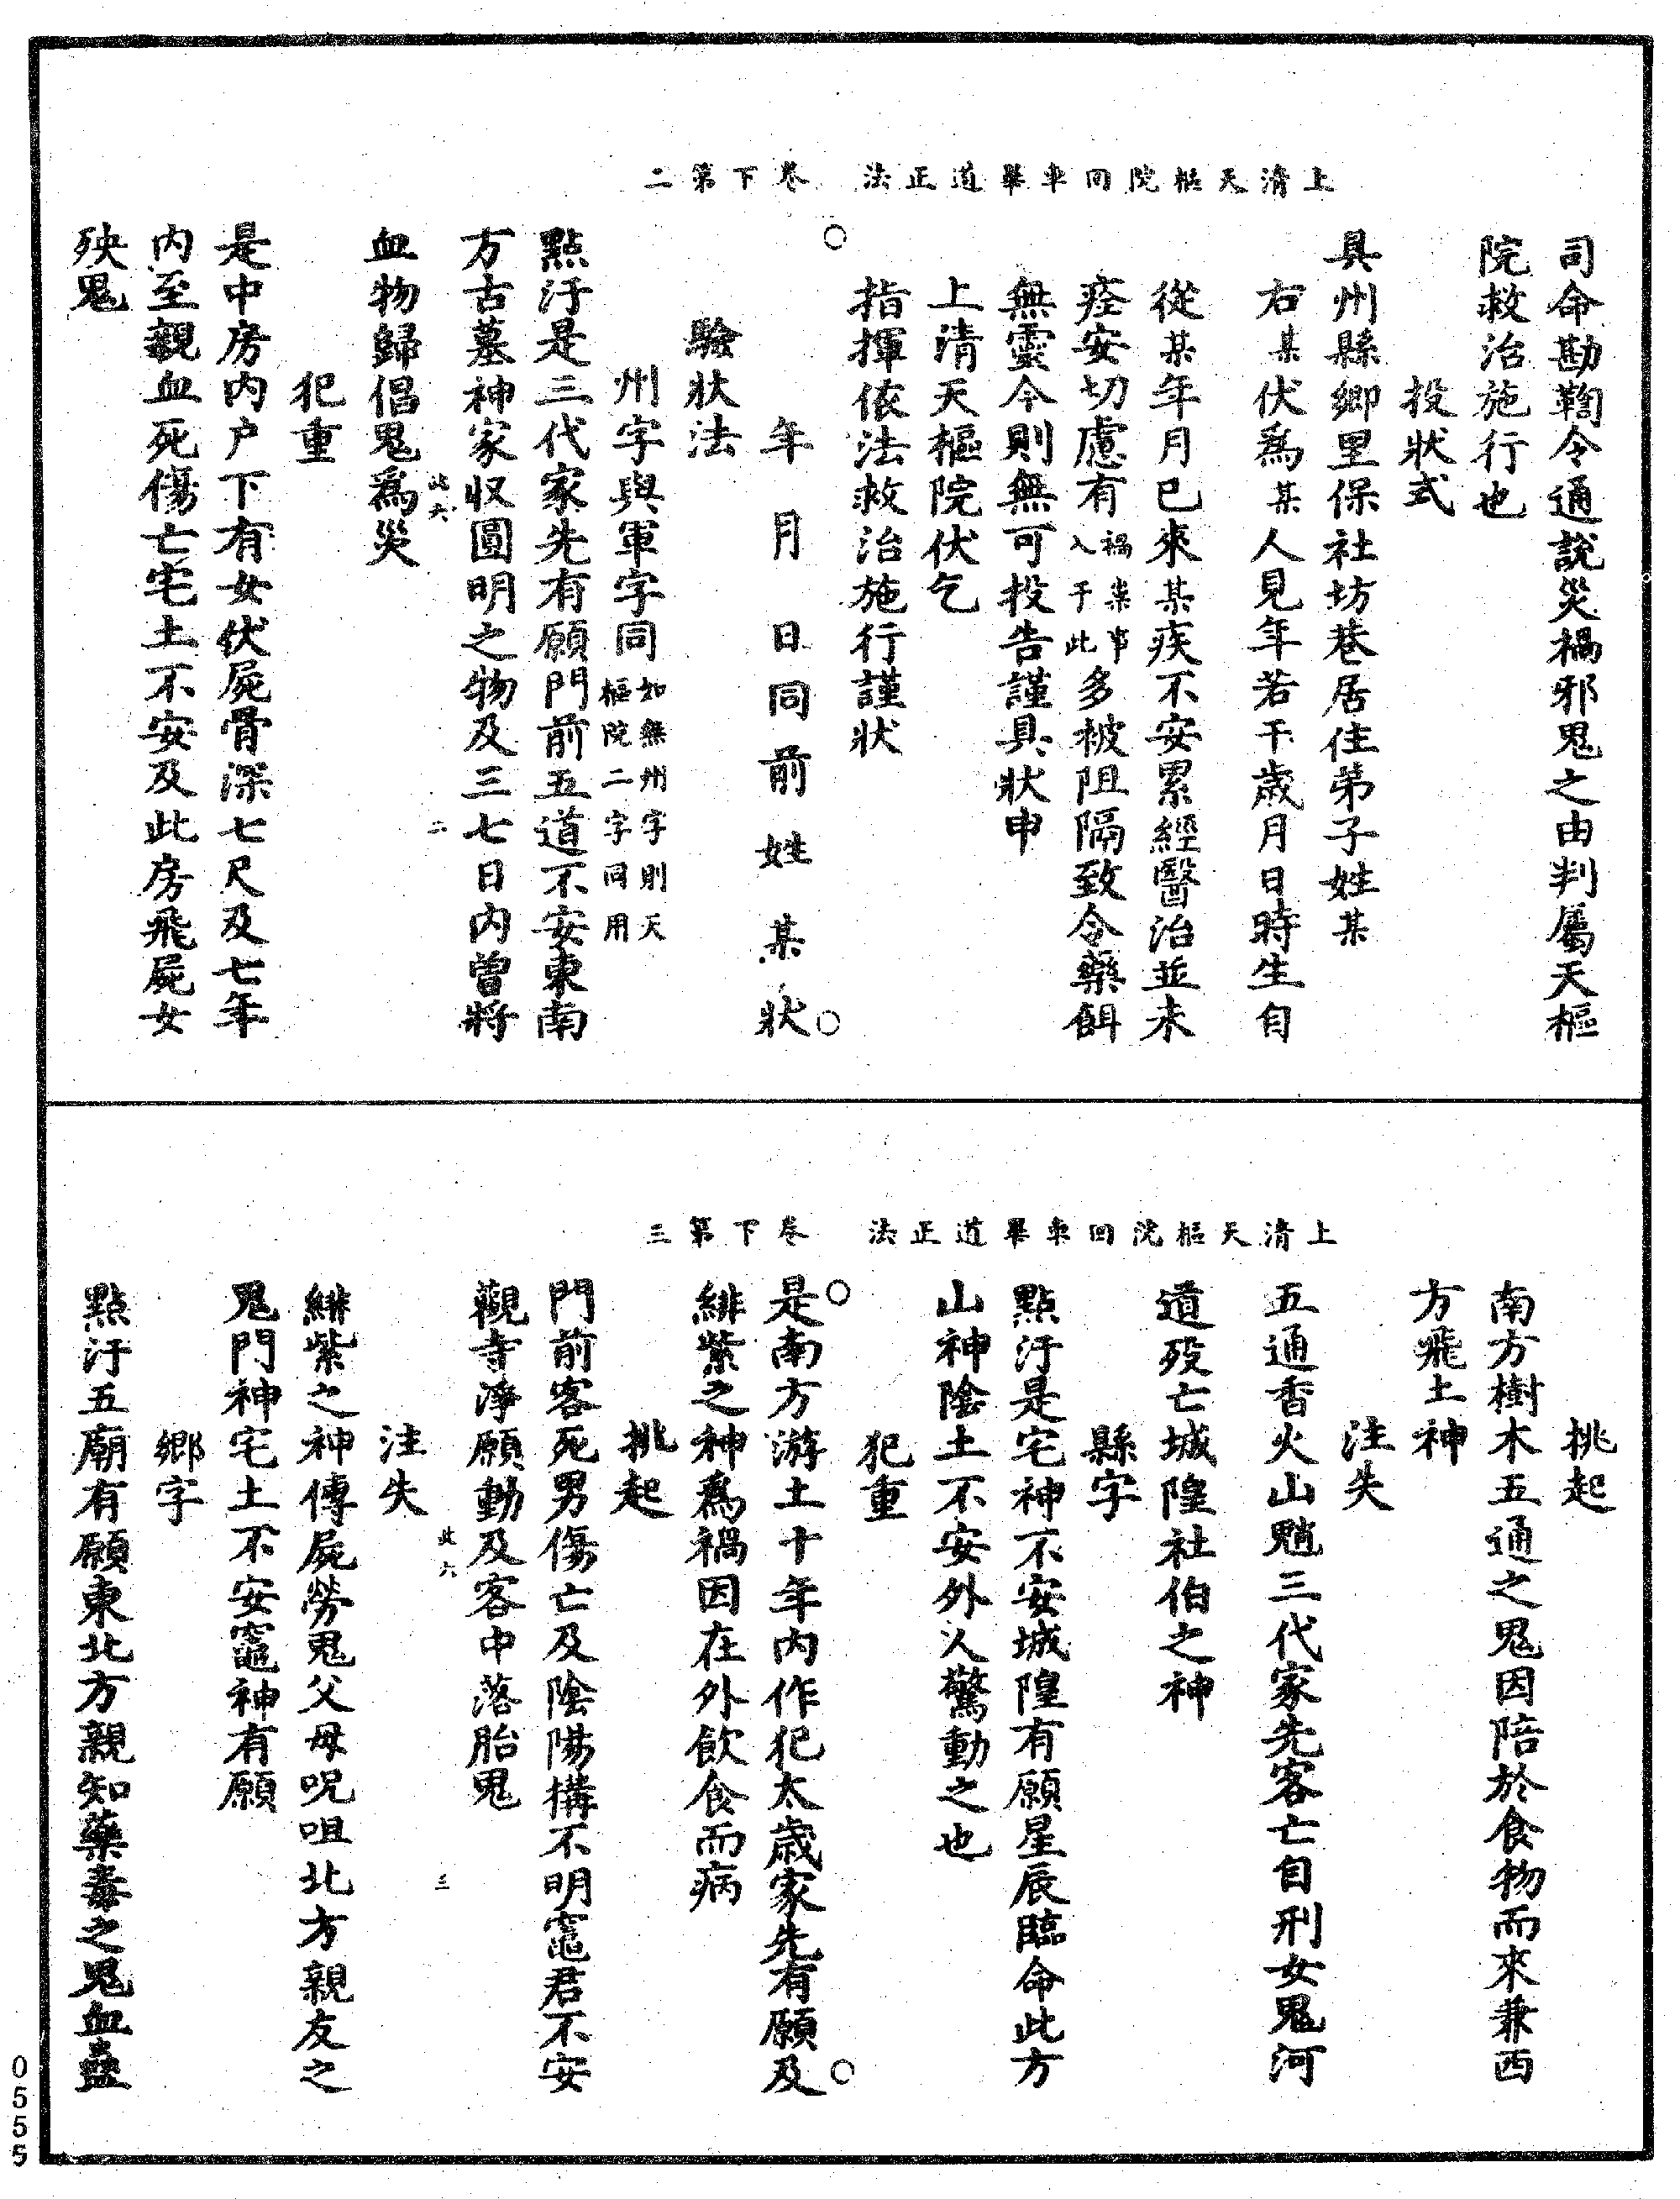 上清天樞院回車畢道正法　卷下第二
司命勘鞫令通說災禍邪鬼之由判屬天樞
院救治施行也
投狀式
具州縣鄉里保社坊巷居住弟子姓某
右某伏爲某人見年若干歲月日時生自
從某年月已來某疾不安累經醫治並未
痊安切慮有禍祟事入于此多被阻隔致令藥餌
無靈今則無可投告謹具狀申
上清天樞院伏乞
指揮依法救治施行謹狀
年　月　日同前姓某狀
驗狀法
州字與軍字同如無州字則天樞院二字同用
點汙是三代家先有願門前五道不安東南
方古墓神家収圓明之物及三七日內曾將
此六　二
血物歸倡鬼爲災
犯重
是中房內戶下有女伏屍骨深七尺及七年
內至親血死傷亡宅土不安及此房飛屍女
殃鬼
上清天樞院回車畢道正法　卷下第三
挑起
南方樹木五通之鬼因陪於食物而來兼西
方飛土神
注失
五通香火山魈三代家先客亡自刑女鬼河
道歿亡城隍社伯之神
縣字
點汙是宅神不安城隍有願星辰臨命此方
山神陰土不安外人驚動之也
犯重
是南方游土十年內作犯太歲家先有願及
緋紫之神爲禍因在外飲食而病
挑起
門前客死男傷亡及陰陽構不明竈君不安
觀寺淨願動及客中落胎鬼
此六　三
注失
緋紫之神傳屍勞鬼父母呪咀北方親友之
鬼門神宅土不安竈神有願
鄉字
點汙五廟有願東北方親知藥毒之鬼血蠱
0555